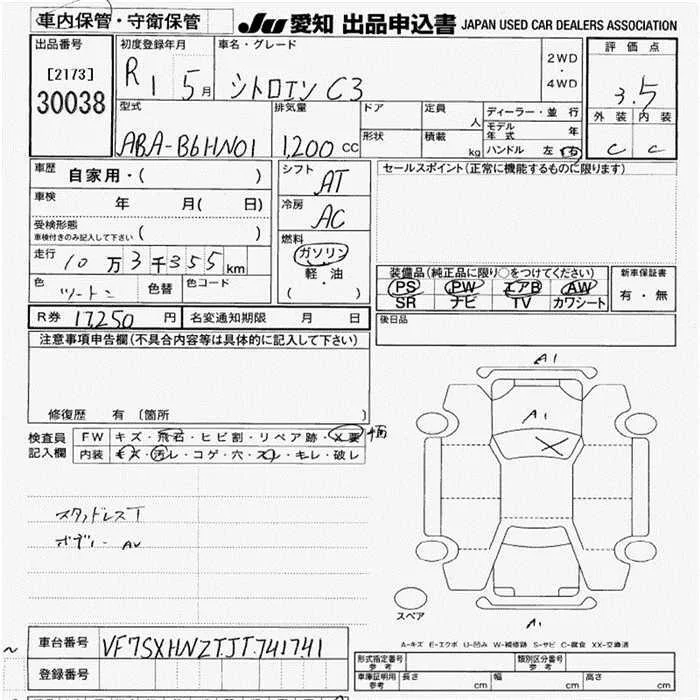 車内保管・守衛保管
JU 愛知 出品申込書 JAPAN USED CAR DEALERS ASSOCIATION
出品番号
[2173]
30038
初度登録年月
R 1 5 月
車名・グレード
シトロエン C3
2WD
・
4WD
評価点
3.5
外装 内装
C C
型式
ABA-B6HN01
排気量
1,200 cc
ドア
形状
定員
人
積載
kg
ディーラー・並行
モデル年式 年
ハンドル 左 右
車歴 自家用・( )
車検 年 月( 日)
受検形態
車検付きのみ記入して下さい ( )
走行 10 万 3 千 355 km
色 ツートン 色替 色コード
シフト
AT
冷房
AC
燃料
ガソリン
・
軽・油
・
( )
セールスポイント(正常に機能するものに限ります)
装備品(純正品に限り○をつけてください)
PS PW エアB AW
SR ナビ TV カワシート
新車保証書
有・無
R券 17,250 円 名変通知期限 月 日
後日品
注意事項申告欄(不具合内容等は具体的に記入して下さい)
修復歴 有 [箇所 ]
検査員
記入欄
FW キズ・飛石・ヒビ割・リペア跡・X要
内装 キズ・汚レ・コゲ・穴・スレ・キレ・破レ
スタッドレスT
ボディー AU
A1
A1
X
A1
スペア
A-キズ E-エクボ U-凹み W-補修跡 S-サビ C-腐食 XX-交換済
車台番号 VF7SXHNZTJT741741
登録番号
型式指定番号
参考
類別区分番号
参考
車庫証明用
参考
長さ cm 幅 cm 高さ cm